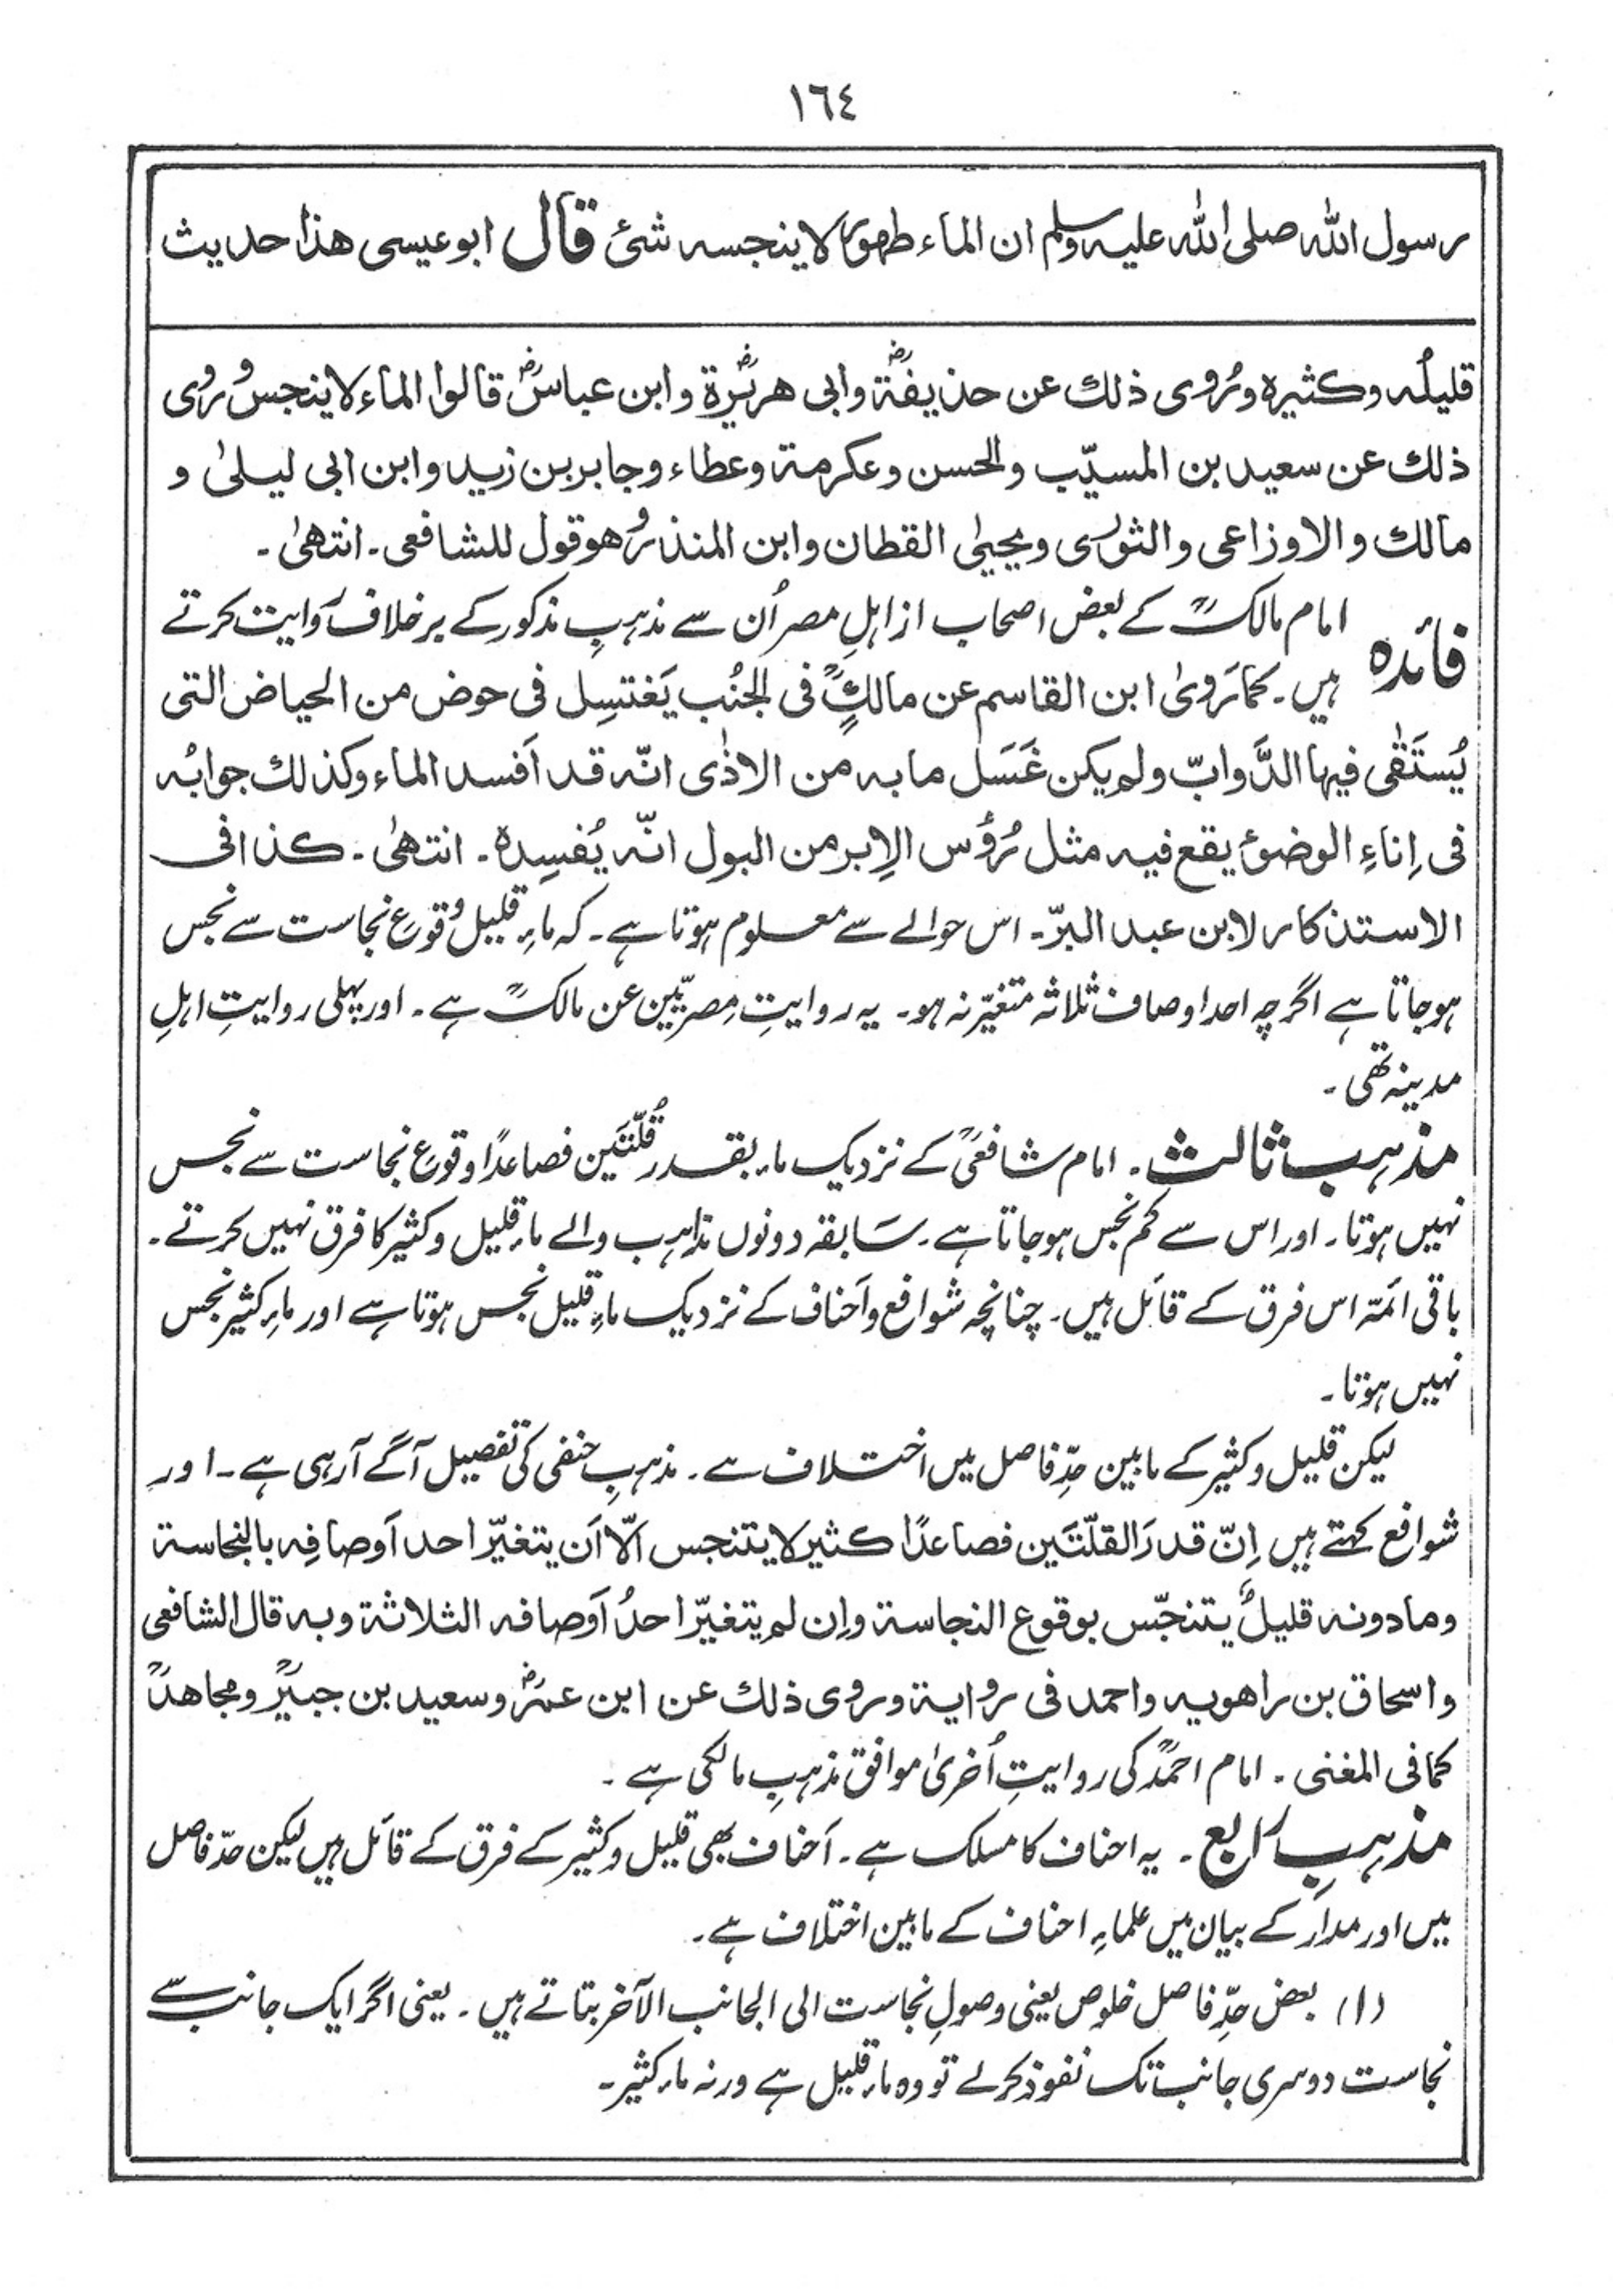 ١٦٤
رسول الله صلى الله عليه وسلم ان الماء طهور لا ينجسه شئ قال ابو عيسى هذا حديث
قليلُه وكثيره ورُوى ذلك عن حذيفةؓ وابى هريرةؓ وابن عباسؓ قالوا الماء لا ينجس ورُوى
ذلك عن سعيد بن المسيّب والحسن وعكرمة وعطاء وجابر بن زيد وابن ابى ليلىٰ و
مالك والاوزاعى والثورى ويحيىٰ القطان وابن المنذر وهو قول للشافعى۔ انتهىٰ۔
فائدہ امام مالکؒ کے بعض اصحاب از اہلِ مصر اُن سے مذہبِ مذکور کے برخلاف روایت کرتے
ہیں۔ کما رَوىٰ ابن القاسم عن مالكٍؒ فى الجنُب يَغتسِل فى حوض من الحياض التى
يُستَقىٰ فيها الدَّوابّ ولم يكن غَسَل ما به من الاذٰى انّه قد اَفسد الماء وكذلك جوابُه
فى اِناءِ الوضوءِ يقع فيه مثل رُؤُس الاِبر من البول انّه يُفسِده۔ انتهىٰ۔ كذا فى
الاستذكار لابن عبد البرّ۔ اس حوالے سے معلوم ہوتا ہے۔ کہ ماءِ قلیل وُقوعِ نجاست سے نجس
ہوجاتا ہے اگرچہ احد اوصاف ثلاثہ متغیّر نہ ہو۔ یہ روایتِ مِصریّین عن مالکؒ ہے۔ اور پہلی روایتِ اہلِ
مدینہ تھی۔
مذہب ثالث۔ امام شافعیؒ کے نزدیک ماء بقدر قُلّتَین فصاعدًا وقوعِ نجاست سے نجس
نہیں ہوتا۔ اور اس سے کم نجس ہوجاتا ہے۔ سَابقہ دونوں مذاہب والے ماءِ قلیل وکثیر کا فرق نہیں کرتے۔
باقی ائمّہ اس فرق کے قائل ہیں۔ چنانچہ شوافع واَحناف کے نزدیک ماءِ قلیل نجس ہوتا ہے اور ماءِ کثیر نجس
نہیں ہوتا۔
لیکن قلیل وکثیر کے مابین حدِّ فاصل میں اختلاف ہے۔ مذہبِ حنفی کی تفصیل آگے آرہی ہے۔ اور
شوافع کہتے ہیں اِنّ قدرَ القلّتَين فصاعدًا كثير لا يتنجس الّا اَن يتغيّر احد اَوصافِه بالنجاسة
وما دونه قليلٌ يتنجّس بوقوع النجاسة واِن لم يتغيّر احدُ اَوصافه الثلاثة وبه قال الشافعى
واسحاق بن راهويه واحمد فى رواية وروى ذلك عن ابن عمرؓ وسعيد بن جبيرؒ ومجاهدؒ
كما فى المغنى۔ امام احمدؒ کی روایتِ اُخریٰ موافق مذہبِ مالکی ہے۔
مذہبِ رابع۔ یہ احناف کا مسلک ہے۔ اَحناف بھی قلیل وکثیر کے فرق کے قائل ہیں لیکن حدّ فاصل
میں اور مدار کے بیان میں علماءِ احناف کے مابین اختلاف ہے۔
(١) بعض حدِّ فاصل خلوص یعنی وصولِ نجاست الی الجانب الآخر بتاتے ہیں۔ یعنی اگر ایک جانب سے
نجاست دوسری جانب تک نفوذ کرلے تو وہ ماءِ قلیل ہے ورنہ ماءِ کثیر۔